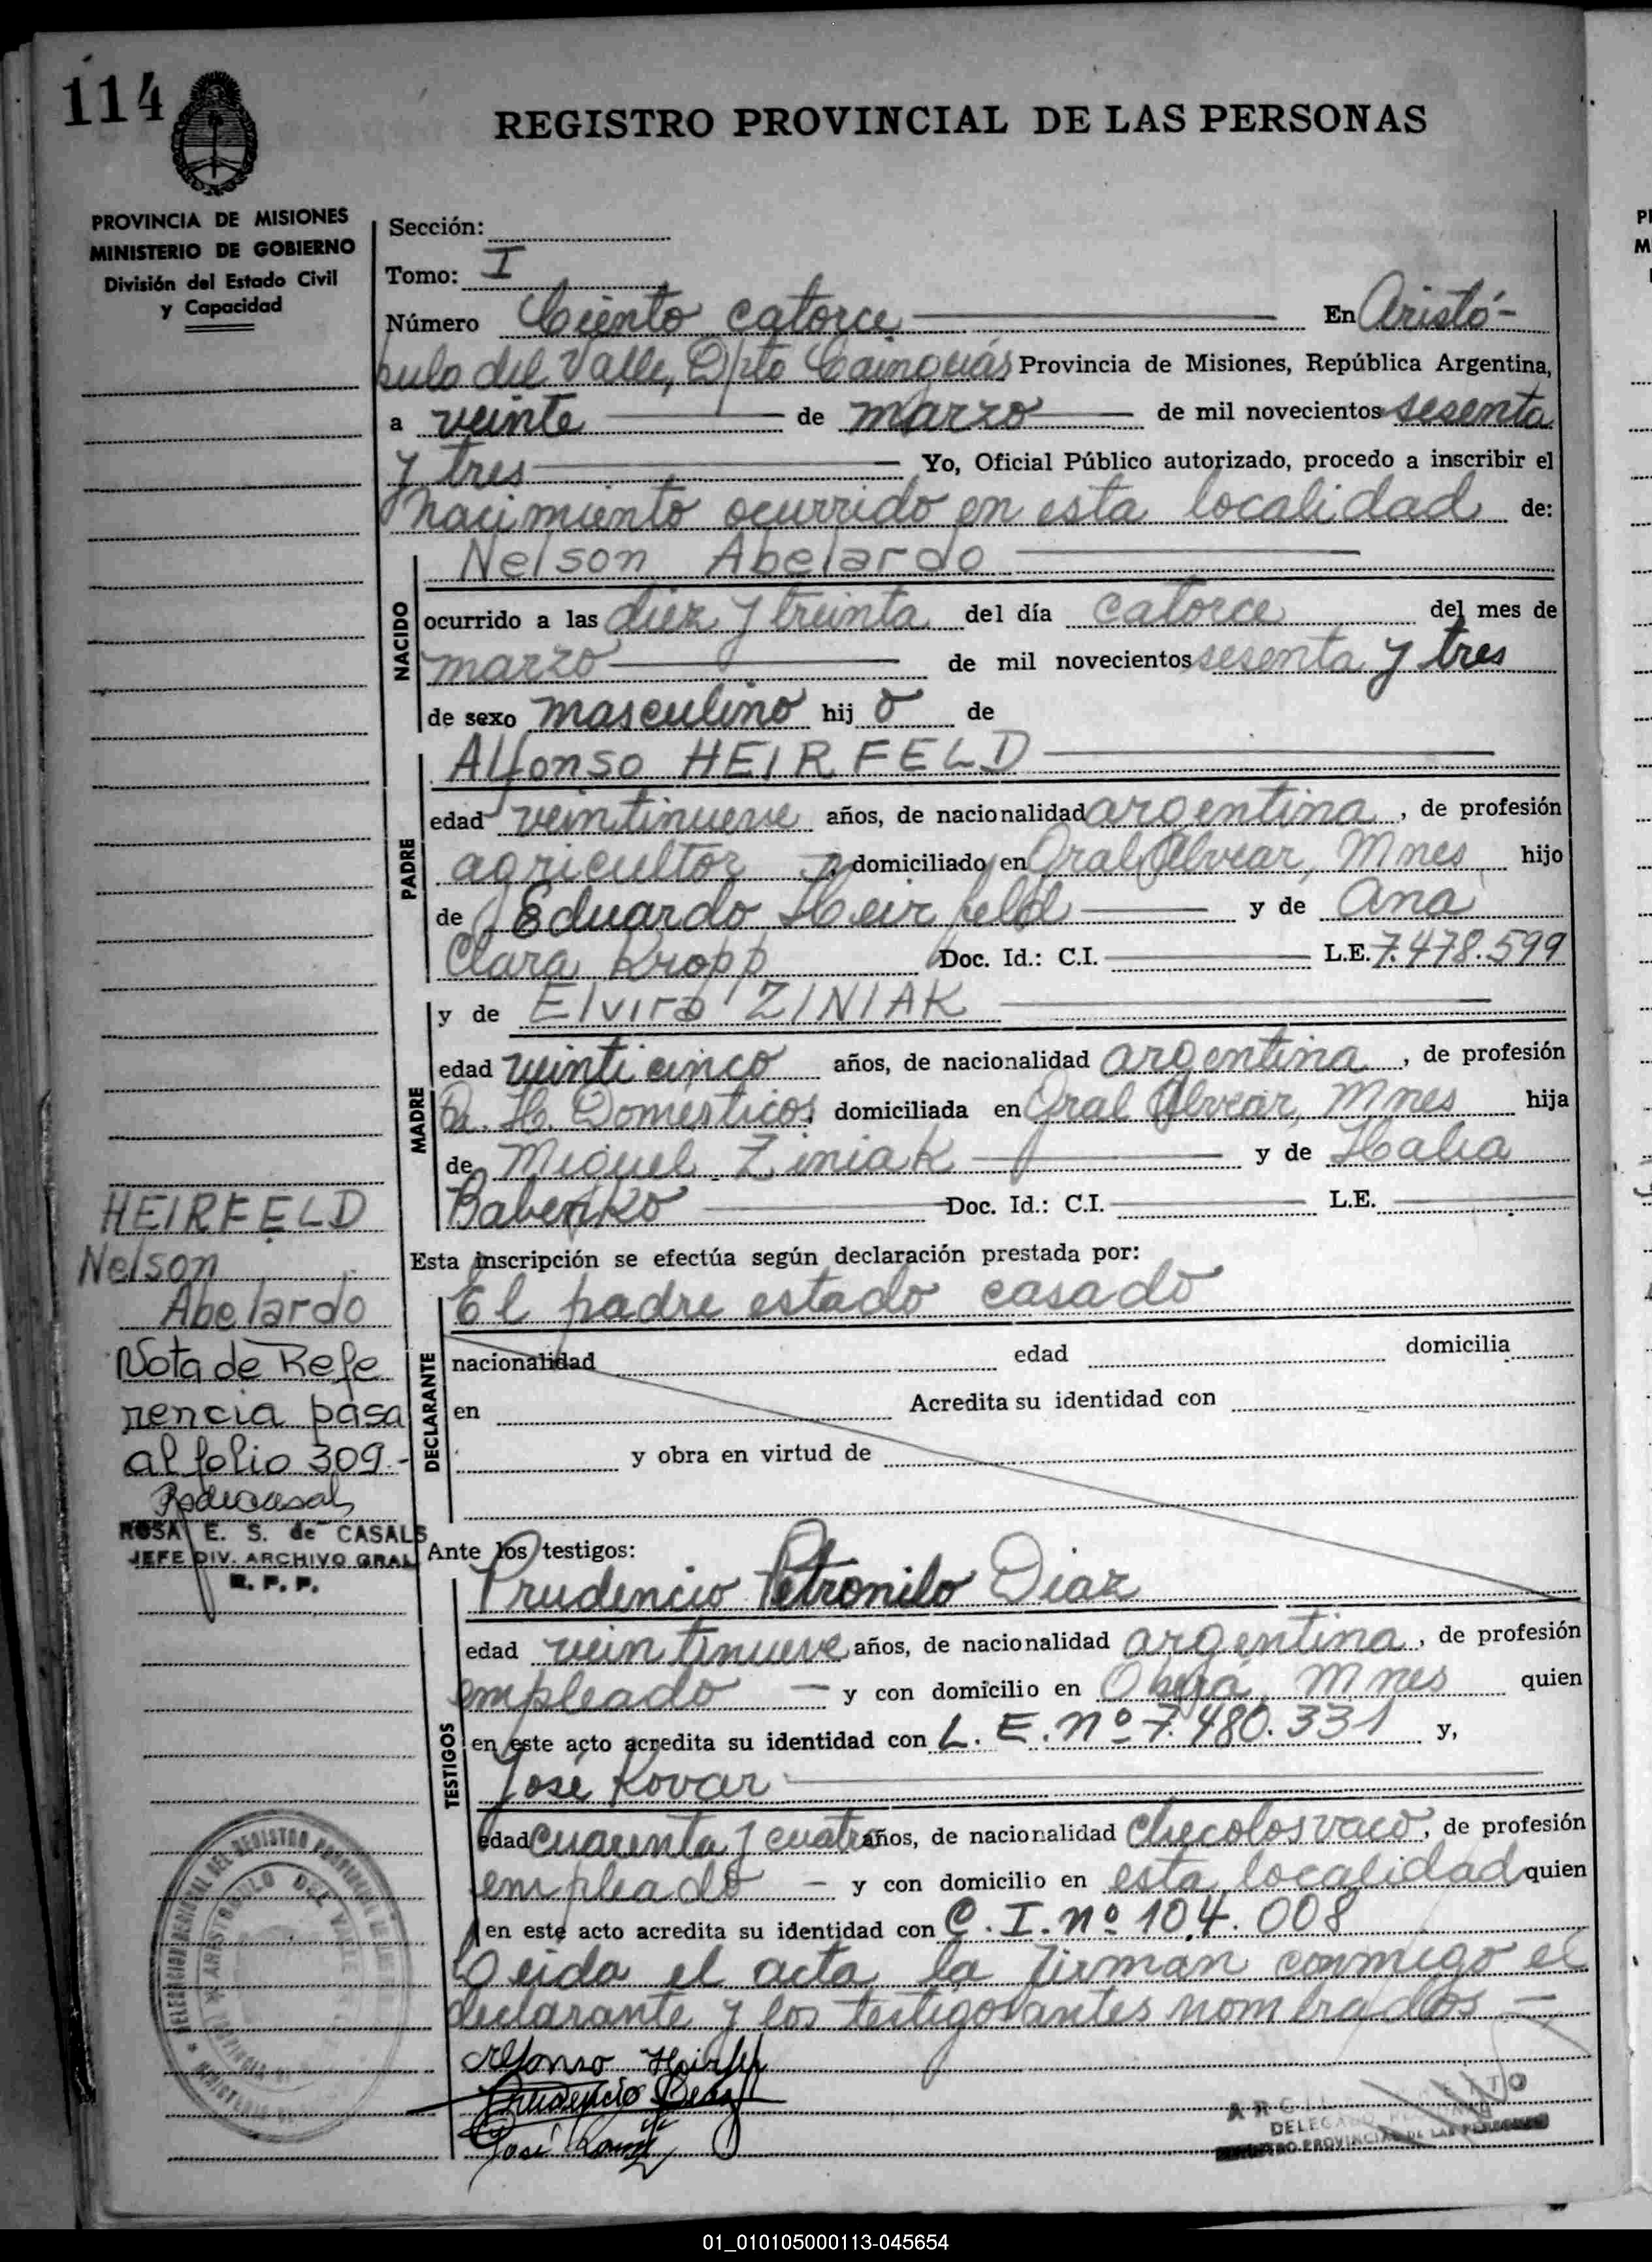 114
REGISTRO PROVINCIAL DE LAS PERSONAS
PROVINCIA DE MISIONES
MINISTERIO DE GOBIERNO
División del Estado Civil
y Capacidad
Sección:
Tomo: I
Número Ciento catorce En Aristó-
bulo del Valle, Dpto Cainguás Provincia de Misiones, República Argentina,
a veinte de marzo de mil novecientos sesenta
y tres Yo, Oficial Público autorizado, procedo a inscribir el
nacimiento ocurrido en esta localidad de:
NACIDO
Nelson Abelardo
ocurrido a las diez y treinta del día catorce del mes de
marzo de mil novecientos sesenta y tres
de sexo masculino hij o de
PADRE
Alfonso HEIRFELD
edad veintinueve años, de nacionalidad argentina, de profesión
agricultor domiciliado en Gral Alvear, Mnes hijo
de Eduardo Heirfeld y de Ana
Clara Kropp Doc. Id.: C.I. L.E. 7.478.599
MADRE
y de Elvira ZINIAK
edad veinticinco años, de nacionalidad argentina, de profesión
Q. H. Domesticos domiciliada en Gral Alvear, Mnes hija
de Miguel Ziniak y de Halia
Babenko Doc. Id.: C.I. L.E.
Esta inscripción se efectúa según declaración prestada por:
DECLARANTE
El padre estado casado
nacionalidad edad domicilia
en Acredita su identidad con
y obra en virtud de
HEIRFELD
Nelson
Abelardo
Nota de Refe
rencia pasa
al folio 309.-
ROSA E. S. de CASALS
JEFE DIV. ARCHIVO GRAL
R. P. P.
Ante los testigos:
TESTIGOS
Prudencio Petronilo Diaz
edad veintinueve años, de nacionalidad argentina, de profesión
empleado y con domicilio en Oberá, Mnes quien
en este acto acredita su identidad con L. E. nº 7.480.331 y,
José Kovar
edad cuarenta y cuatro años, de nacionalidad checoloslovaco, de profesión
empleado y con domicilio en esta localidad quien
en este acto acredita su identidad con C. I. nº 104.008
Leida el acta la firman conmigo el
declarante y los testigos antes nombrados
Alfonso Heirfeld
Prudencio Diaz
José Kovar
DELEGADO
REGISTRO PROVINCIAL DE LAS PERSONAS
01_010105000113-045654